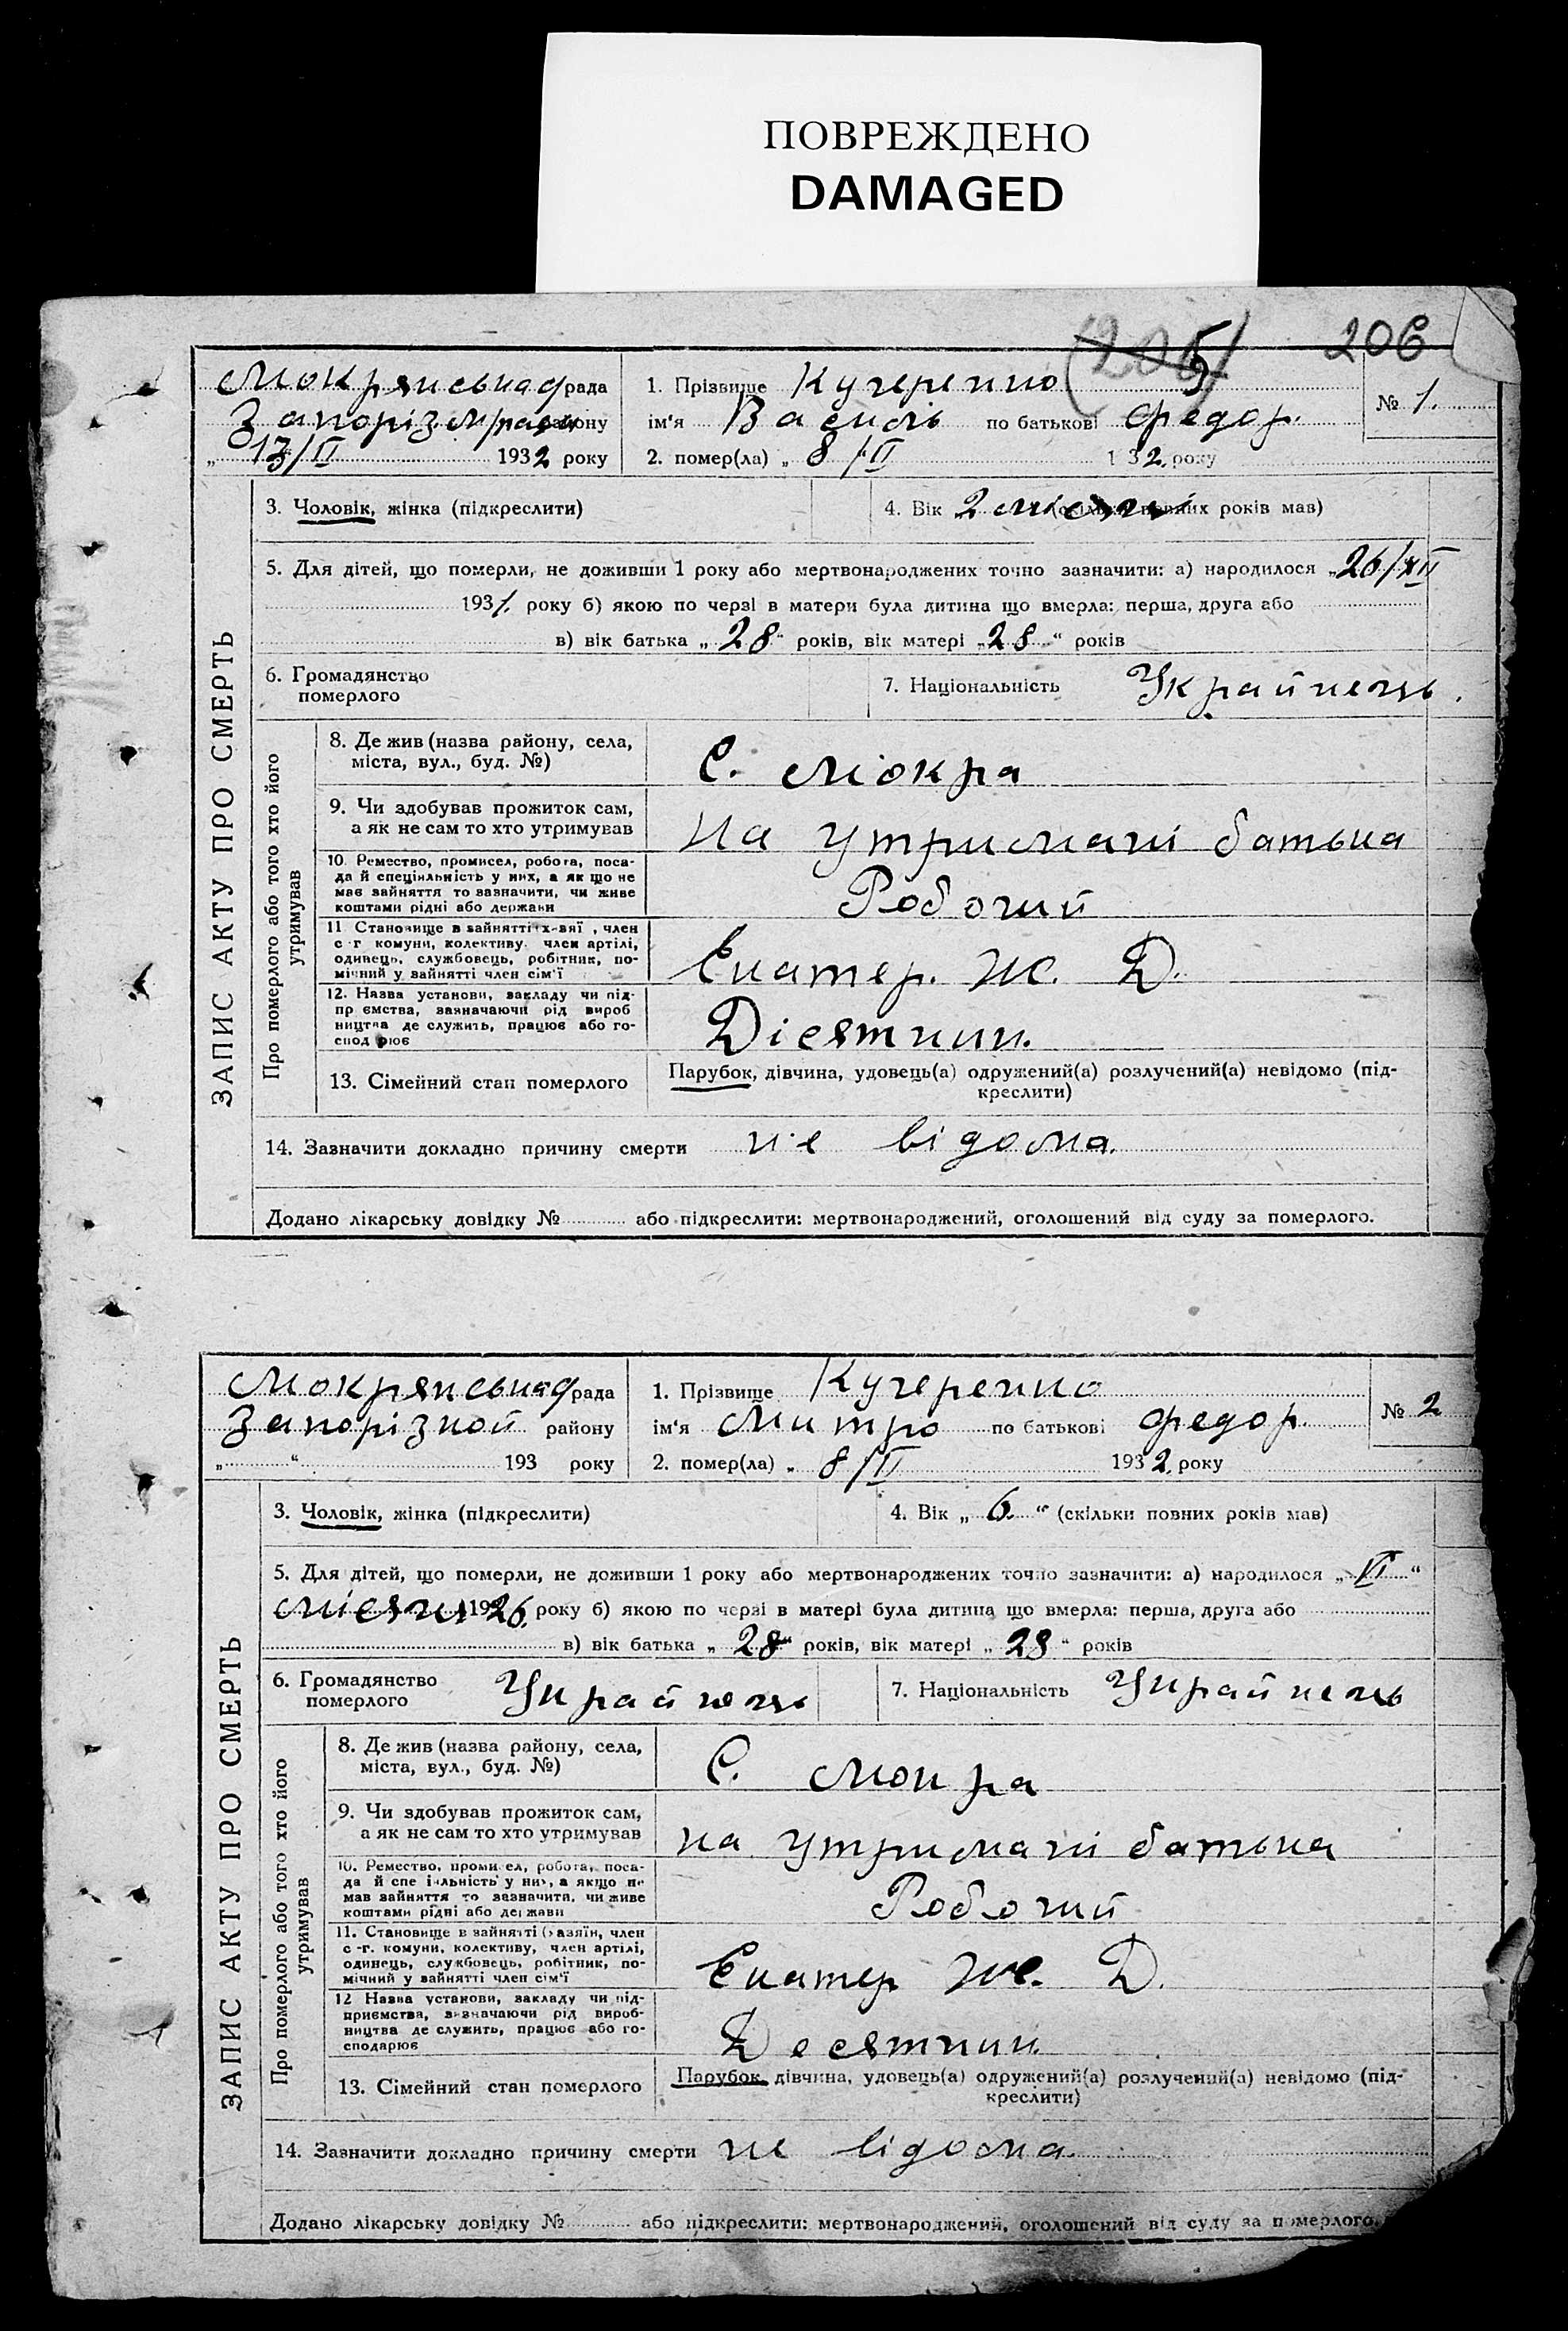 ПОВРЕЖДЕНО
DAMAGED
(205) 206
Мокрянська рада
Запорізм/ району
13/II 1932 року
1. Прізвище Кучеренко
ім'я Василь по батькові Федор.
2. помер(ла) „ 8/II 1 32. року
№ 1.
ЗАПИС АКТУ ПРО СМЕРТЬ
3. Чоловік, жінка (підкреслити)
4. Вік 2 місяці (скільки повних років мав)
5. Для дітей, що померли, не доживши 1 року або мертвонароджених точно зазначити: а) народилося „26/XII
1931. року б) якою по черзі в матери була дитина що вмерла: перша, друга або
в) вік батька „ 28 “ років, вік матері „ 28 “ років
6. Громадянство
померлого
7. Національність Украйнець.
Про померлого або того хто його
утримував
8. Де жив (назва району, села,
міста, вул., буд. №)
С. Мокра
9. Чи здобував прожиток сам,
а як не сам то хто утримував
на утримані батька
10. Ремество, промисел, робота, поса-
да й спеціяльність у них, а якщо не
мав зайняття то зазначити, чи живе
коштами рідні або держави
Робочий
11 Становище в зайнятті х-зяї , член
с-г комуни, колективу член артілі,
одинець, службовець, робітник, по-
мічний у зайнятті член сім'ї
Екатер. Ж. Д.
12. Назва установи, закладу чи під-
пр ємства, зазначаючи рід вироб
ництва де служить, працює або го-
спод рює
Діесятник.
13. Сімейний стан померлого
Парубок, дівчина, удовець(а) одружений(а) розлучений(а) невідомо (під-
креслити)
14. Зазначити докладно причину смерти не відома.
Додано лікарську довідку № або підкреслити: мертвонароджений, оголошений від суду за померлого.
Мокрянська рада
Запорізкой району
„ “ 193 року
1. Прізвище Кучеренко
ім'я Митро по батькові Федор.
2. помер(ла) „ 8/II 1932. року
№ 2
ЗАПИС АКТУ ПРО СМЕРТЬ
3. Чоловік, жінка (підкреслити)
4. Вік „ 6. “ (скільки повних років мав)
5. Для дітей, що померли, не доживши 1 року або мертвонароджених точно зазначити: а) народилося „ VI “
місяця 1926. року б) якою по черзі в матері була дитина що вмерла: перша, друга або
в) вік батька „ 28 “ років, вік матері „ 28 “ років
6. Громадянство
померлого
Украйнець
7. Національність Украйнець
Про померлого або того хто його
утримував
8. Де жив (назва району, села,
міста, вул., буд. №)
С. Мокра
9. Чи здобував прожиток сам,
а як не сам то хто утримував
на утримані батька
10. Ремество, проми ел, робота, поса-
да й спе іяльність у них, а якщо не
мав зайняття то зазначити, чи живе
коштами рідні або держави
Робочий
11. Становище в зайнятті (хазяїн, член
с-г. комуни, колективу, член артілі,
одинець, службовець, робітник, по-
мічний у зайнятті член сім'ї
Екатер Ж. Д.
12 Назва установи, закладу чи під-
приємства, зазначаючи рід вироб-
ництва де служить, працює або го-
сподарює
Десятник.
13. Сімейний стан померлого
Парубок дівчина, удовець(а) одружений(а) розлучений(а) невідомо (під-
креслити)
14. Зазначити докладно причину смерти не відома.
Додано лікарську довідку № або підкреслити: мертвонароджений, оголошений від суду за померлого.